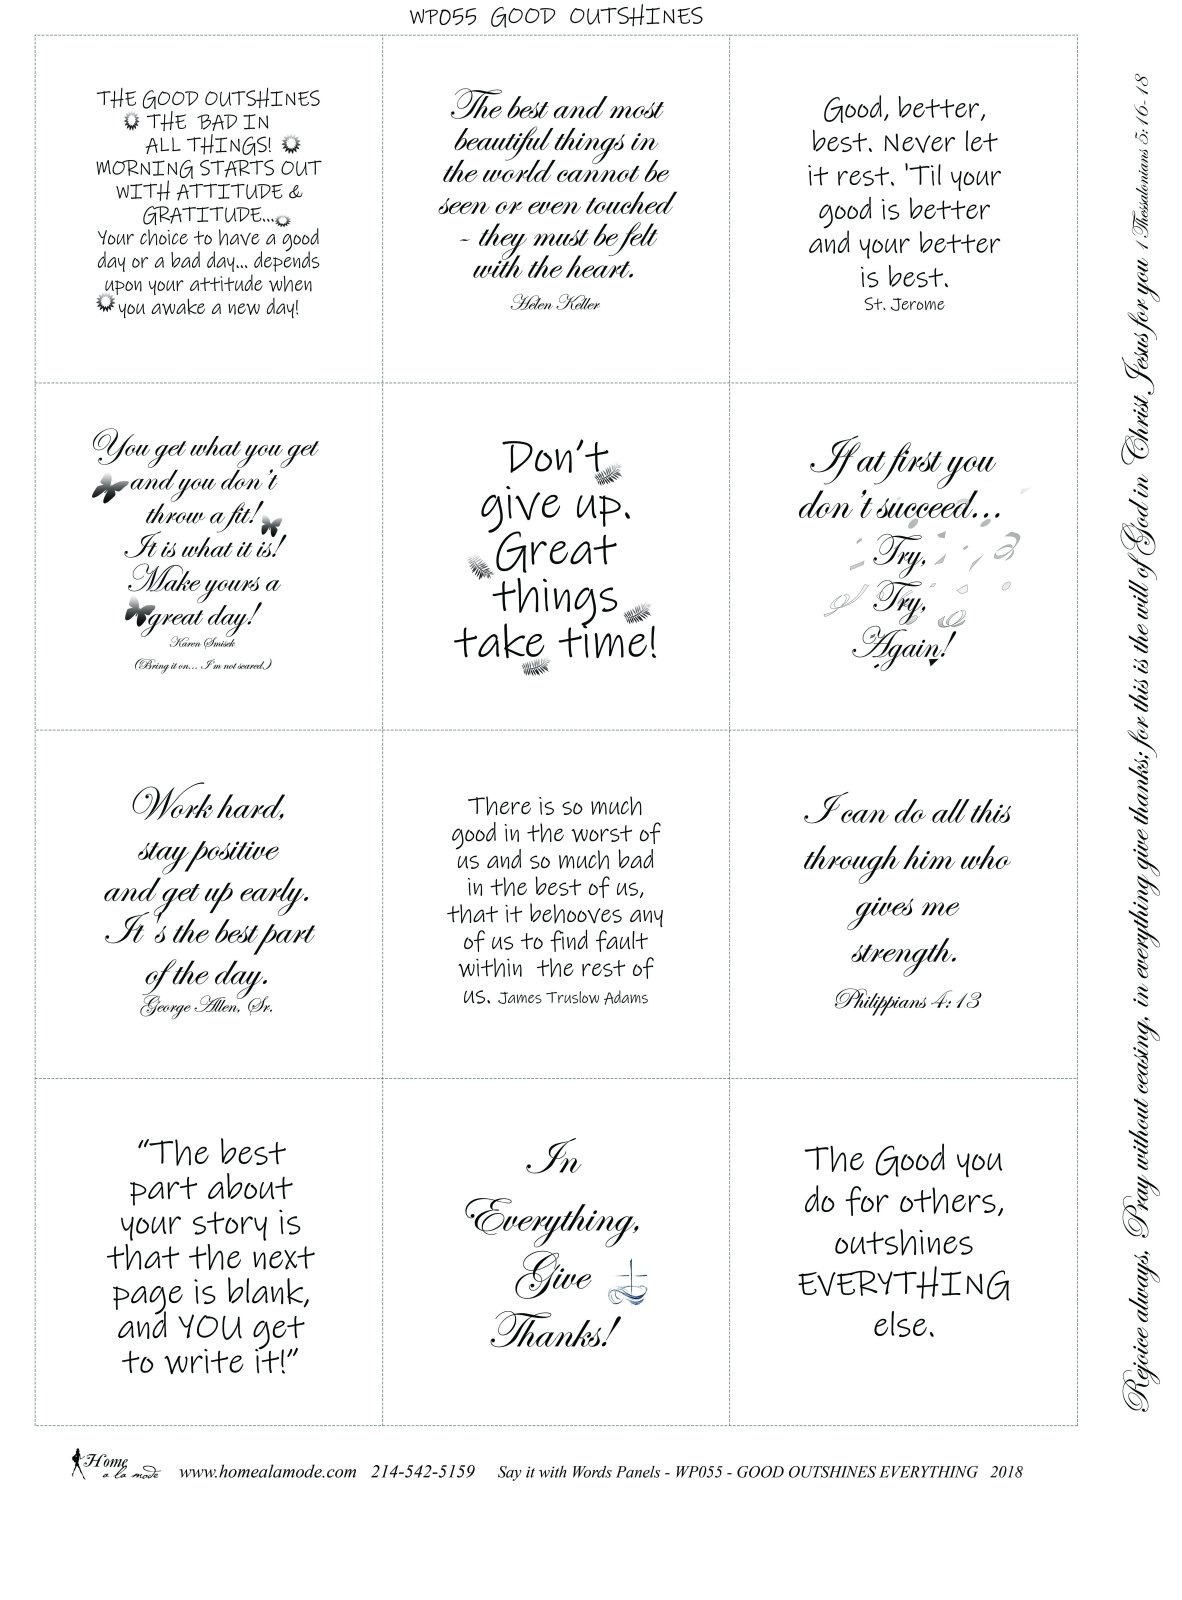 WP055 GOOD OUTSHINES
THE GOOD OUTSHINES
THE BAD IN
ALL THINGS!
MORNING STARTS OUT
WITH ATTITUDE &
GRATITUDE...
Your choice to have a good
day or a bad day... depends
upon your attitude when
you awake a new day!
The best and most
beautiful things in
the world cannot be
seen or even touched
- they must be felt
with the heart.
Helen Keller
Good, better,
best. Never let
it rest. 'Til your
good is better
and your better
is best.
St. Jerome
You get what you get
and you don't
throw a fit!
It is what it is!
Make yours a
great day!
Karen Smisek
(Bring it on... I'm not scared.)
Don't
give up.
Great
things
take time!
If at first you
don't succeed...
Try,
Try,
Again!
Work hard,
stay positive
and get up early.
It's the best part
of the day.
George Allen, Sr.
There is so much
good in the worst of
us and so much bad
in the best of us,
that it behooves any
of us to find fault
within the rest of
us. James Truslow Adams
I can do all this
through him who
gives me
strength.
Philippians 4:13
"The best
part about
your story is
that the next
page is blank,
and YOU get
to write it!"
In
Everything,
Give
Thanks!
The Good you
do for others,
outshines
EVERYTHING
else.
Rejoice always, Pray without ceasing, in everything give thanks; for this is the will of God in Christ Jesus for you 1 Thessalonians 5:16-18
Home
a la mode
www.homealamode.com 214-542-5159 Say it with Words Panels - WP055 - GOOD OUTSHINES EVERYTHING 2018